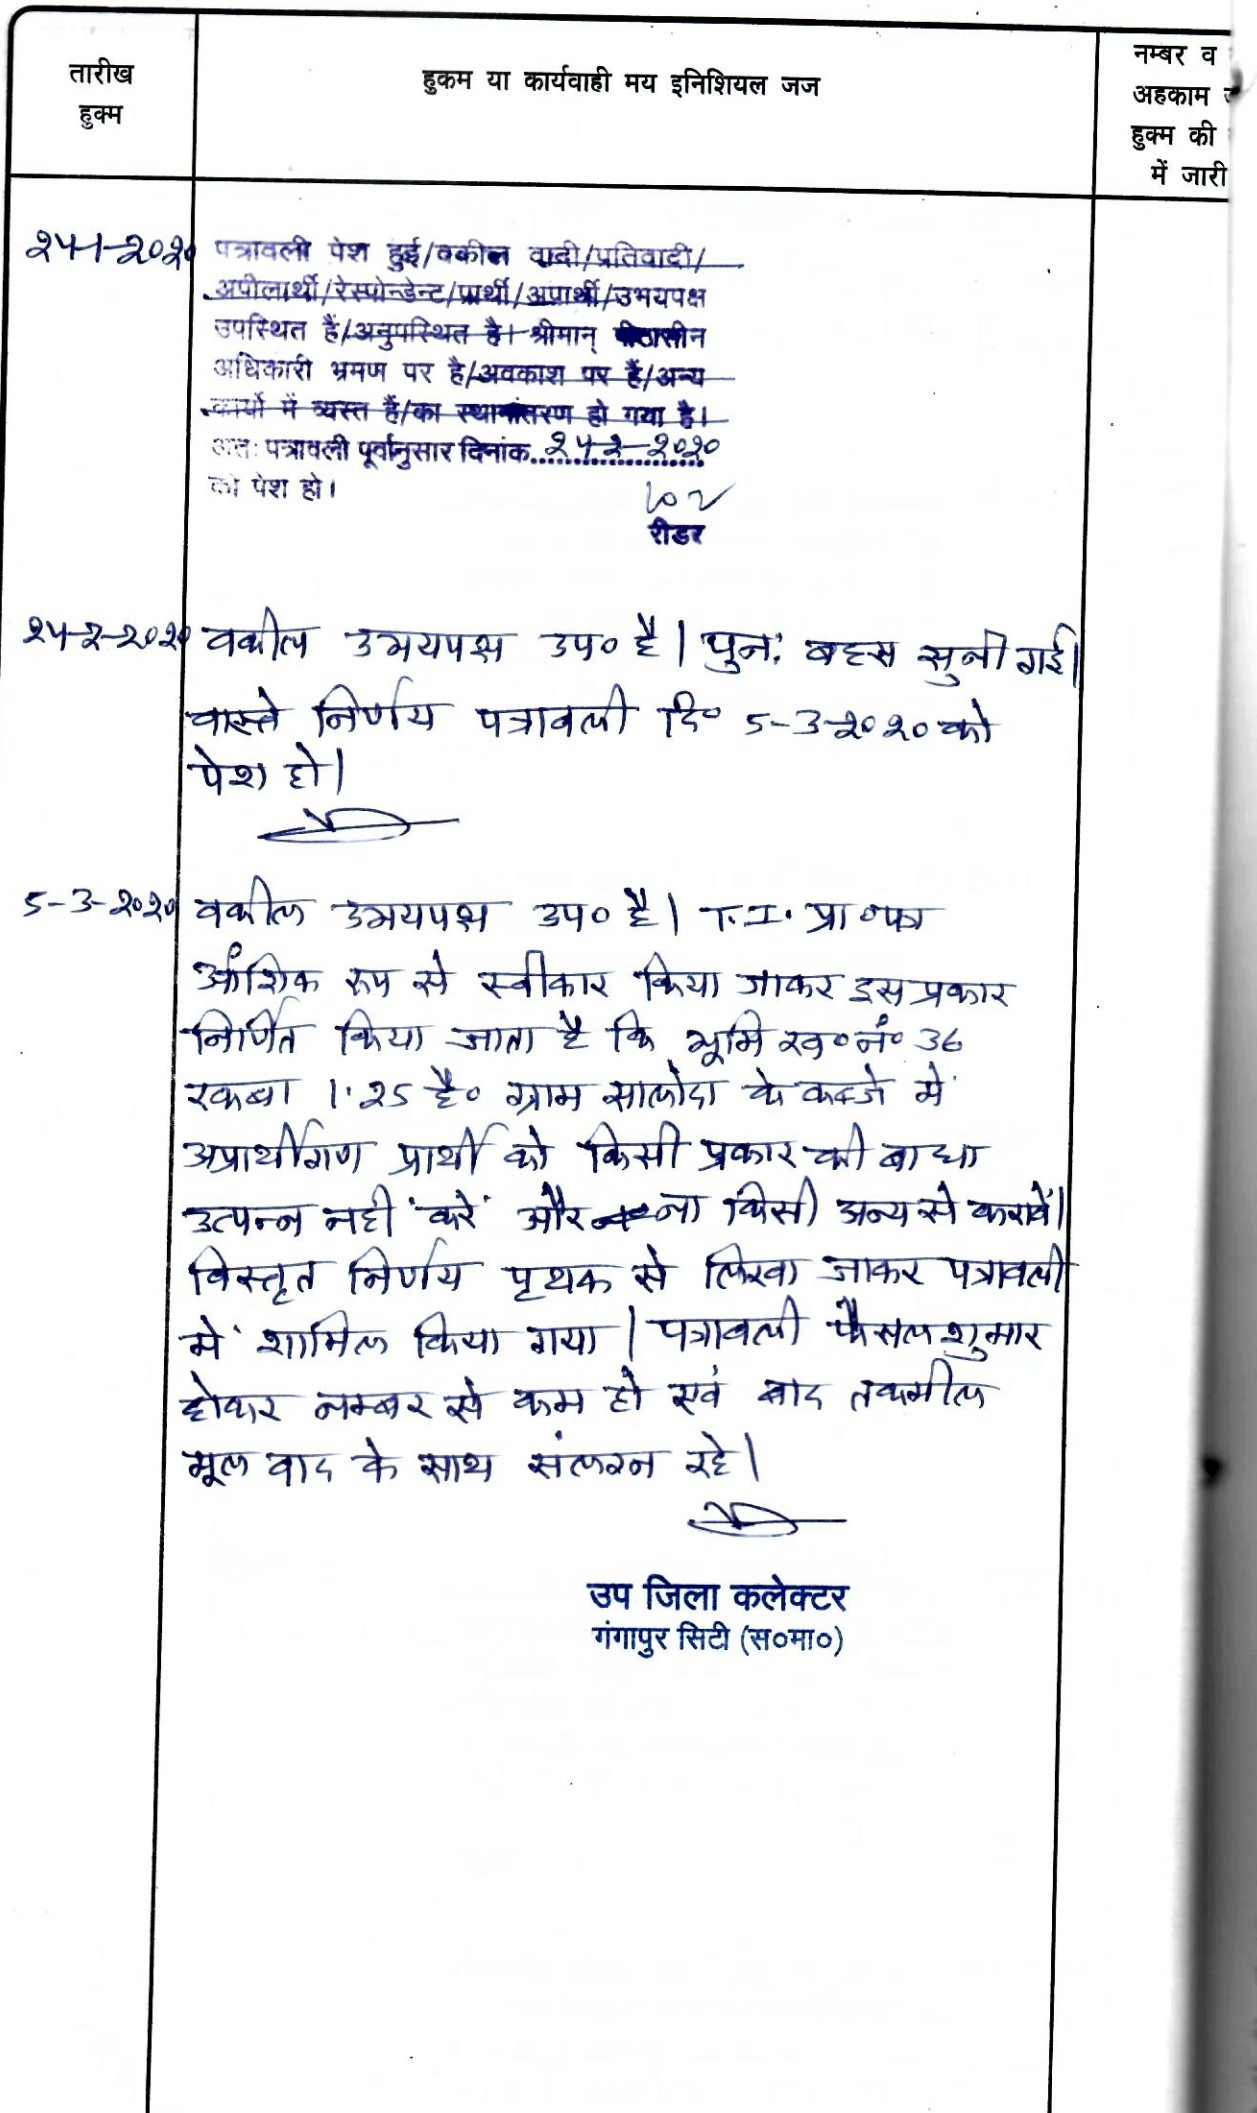 तारीख
हुक्म
हुकम या कार्यवाही मय इनिशियल जज
नम्बर व
अहकाम
हुक्म की
में जारी
पत्रावली पेश हुई/वकील वादी/प्रतिवादी/
अपीलार्थी/रेस्पोन्डेन्ट/प्रार्थी/अप्रार्थी/उभयपक्ष
उपस्थित हैं/अनुपस्थित है। श्रीमान् पीठासीन
अधिकारी भ्रमण पर है/अवकाश पर हैं/अन्य
कार्यो में व्यस्त हैं/का स्थानांतरण हो गया है।
अतः पत्रावली पूर्वानुसार दिनांक २५-२-२०२०
को पेश हो।
रीडर
२५-२-२०२० वकील उभयपक्ष उप० है। पुनः बहस सुनी गई।
वास्ते निर्णय पत्रावली दि० 5-3-२०२० को
पेश हो।
5-3-२०२० वकील उभयपक्ष उप० है। T.I. प्रा०पत्र
आंशिक रूप से स्वीकार किया जाकर इस प्रकार
निर्णित किया जाता है कि भूमि ख०नं० 36
रकबा 1.25 है० ग्राम सालोदा के कब्जे में
अप्रार्थीगण प्रार्थी को किसी प्रकार की बाधा
उत्पन्न नहीं करें और ना किसी अन्य से करावें।
विस्तृत निर्णय पृथक से लिखा जाकर पत्रावली
में शामिल किया गया। पत्रावली फैसल शुमार
होकर नम्बर से कम हो एवं बाद तकमील
मूल वाद के साथ संलग्न रहे।
उप जिला कलेक्टर
गंगापुर सिटी (स०मा०)